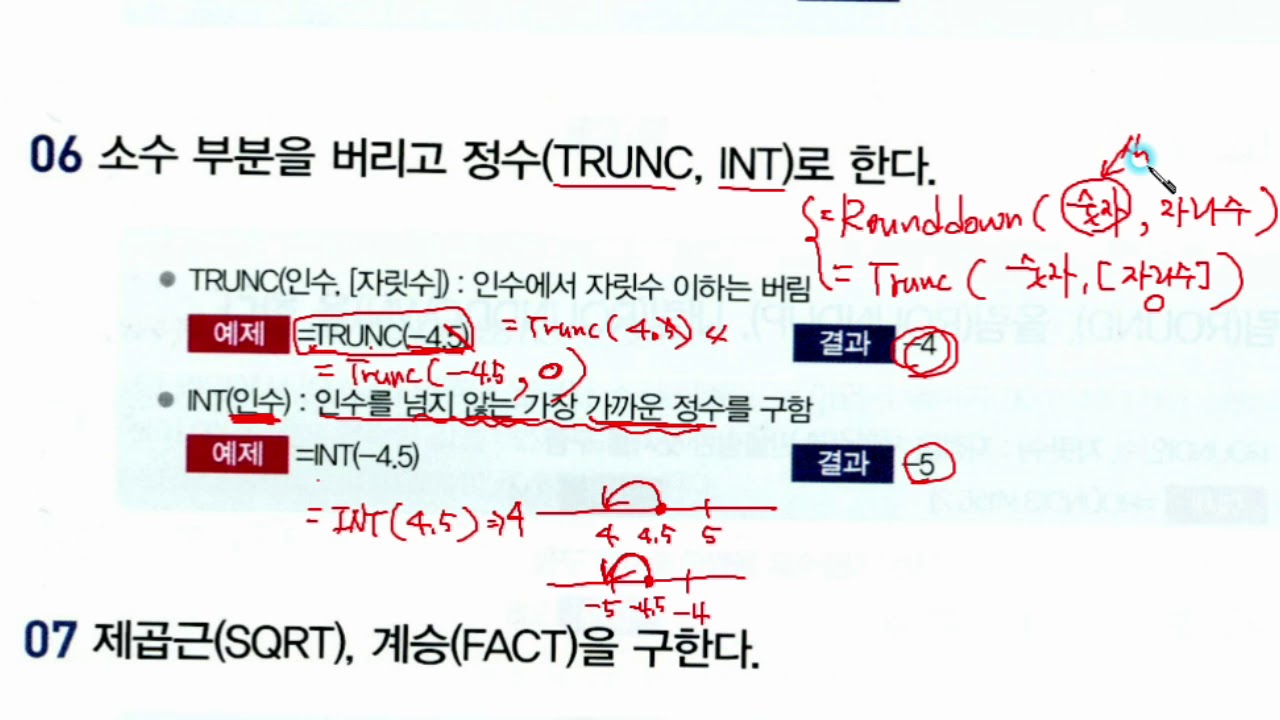 06 소수 부분을 버리고 정수(TRUNC, INT)로 한다.
=Rounddown(숫자, 자리수)
● TRUNC(인수, [자릿수]) : 인수에서 자릿수 이하는 버림
=Trunc(숫자,[자리수])
0
예제 =TRUNC(-4.5) =Trunc(4.5) 4 결과 -4
=Trunc(-4.5, 0)
● INT(인수) : 인수를 넘지 않는 가장 가까운 정수를 구함
예제 =INT(-4.5) 결과 -5
=INT(4.5)⇒4
4 4.5 5
-5 -4.5 -4
07 제곱근(SQRT), 계승(FACT)을 구한다.